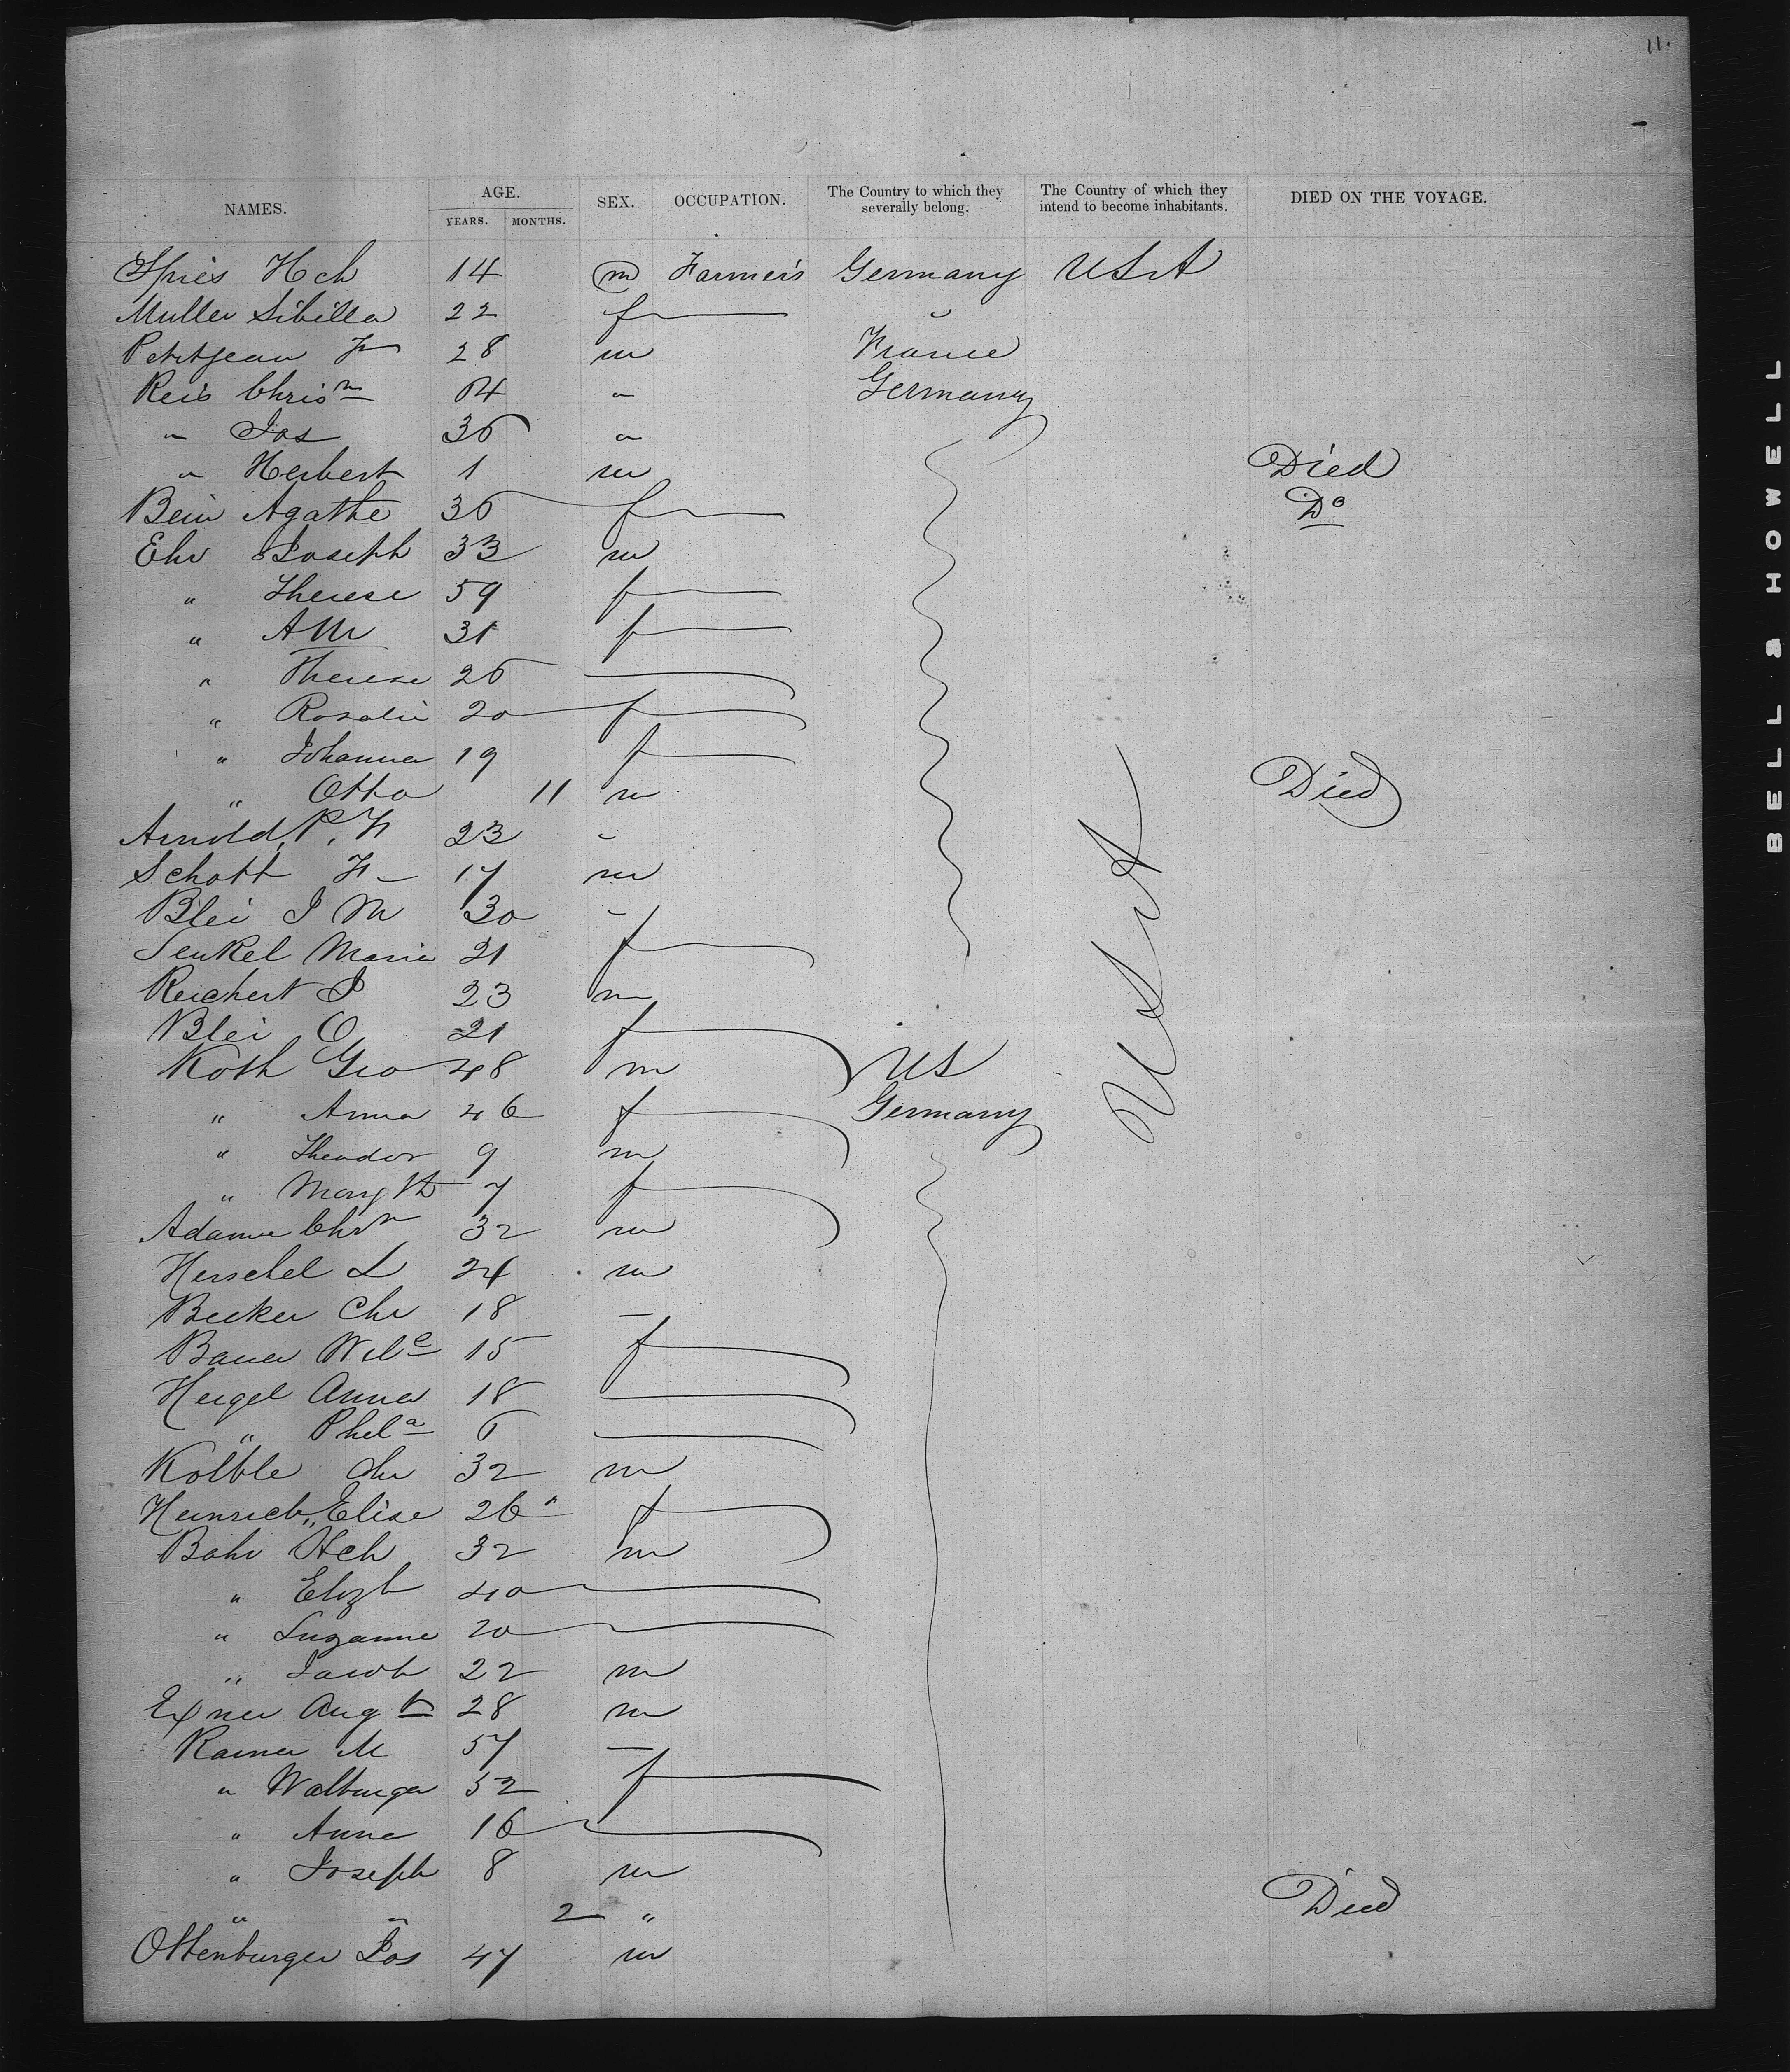 11.
NAMES. AGE. YEARS. MONTHS. SEX. OCCUPATION. The Country to which they severally belong. The Country of which they intend to become inhabitants. DIED ON THE VOYAGE.
Spies Hch 14 m Farmers Germany USA
Muller Sibilla 22 f "
Petitjean Fr 28 m France
Reis Chrisn 64 " Germany
" Jos 36 "
" Herbert 1 m Died
Bein Agathe 36 f Do
Ehr Joseph 33 m
" Therese 59 f
" AM 31 f
" Therese 26
" Rosalie 20 f
" Johanna 19 f
" Otto 11 m Died
Arnold, P. F. 23 "
Schott Fr 17 m
Blei J M 30 "
Senkel Maria 21 f
Reichert J 23 m
Blei O 21 f
Koth Geo 48 m US
" Anna 46 f Germany
" Theodor 9 m
" Margth 7 f
USA
Adame Chrn 32 m
Herschel L 24 m
Becker Chr 18 —
Bauer Wile 15 f
Heigel Anna 18
" Phela 6
Kolble Chr 32 m
Heinrich Elise 26 f
Bohr Hch 32 m
" Elizb 40
" Suzanne 20
" Jacob 22 m
Exner Augt 28 m
Rainer M 57 —
" Walburga 52 f
" Anna 16
" Joseph 8 m
" " 2 " Died
Ottenburger Jos 47 m
BELL & HOWELL